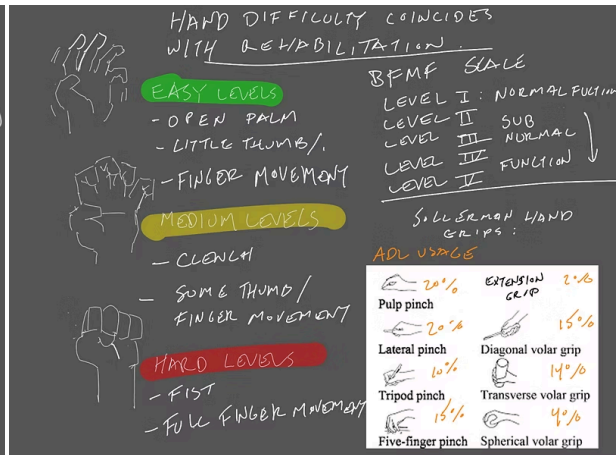 HAND DIFFICULTY COINCIDES
WITH REHABILITATION.
EASY LEVELS
- OPEN PALM
- LITTLE THUMB/.
- FINGER MOVEMENT
MEDIUM LEVELS
- CLENCH
- SOME THUMB/
FINGER MOVEMENT
HARD LEVELS
- FIST
- FULL FINGER MOVEMENT
BFMF SCALE
LEVEL I : NORMAL FUCTION
LEVEL II SUB
LEVEL III NORMAL
LEVEL IV FUNCTION
LEVEL V
SOLLERMAN HAND
GRIPS :
ADL USAGE
20%
Pulp pinch
EXTENSION
GRIP
2%
20%
Lateral pinch
15%
Diagonal volar grip
10%
Tripod pinch
14%
Transverse volar grip
15%
Five-finger pinch
4%
Spherical volar grip